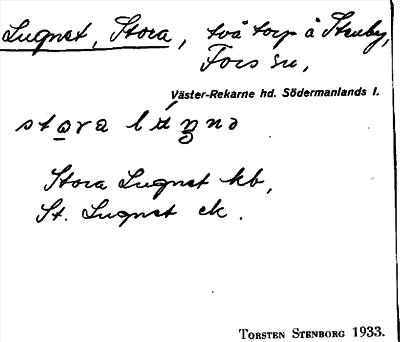 Lugnet, Stora, två torp å Struby,
Fors sn,
Väster-Rekarne hd. Södermanlands l.
Stora Lugnet kb,
St. Lugnet ek.
TORSTEN STENBORG 1933.